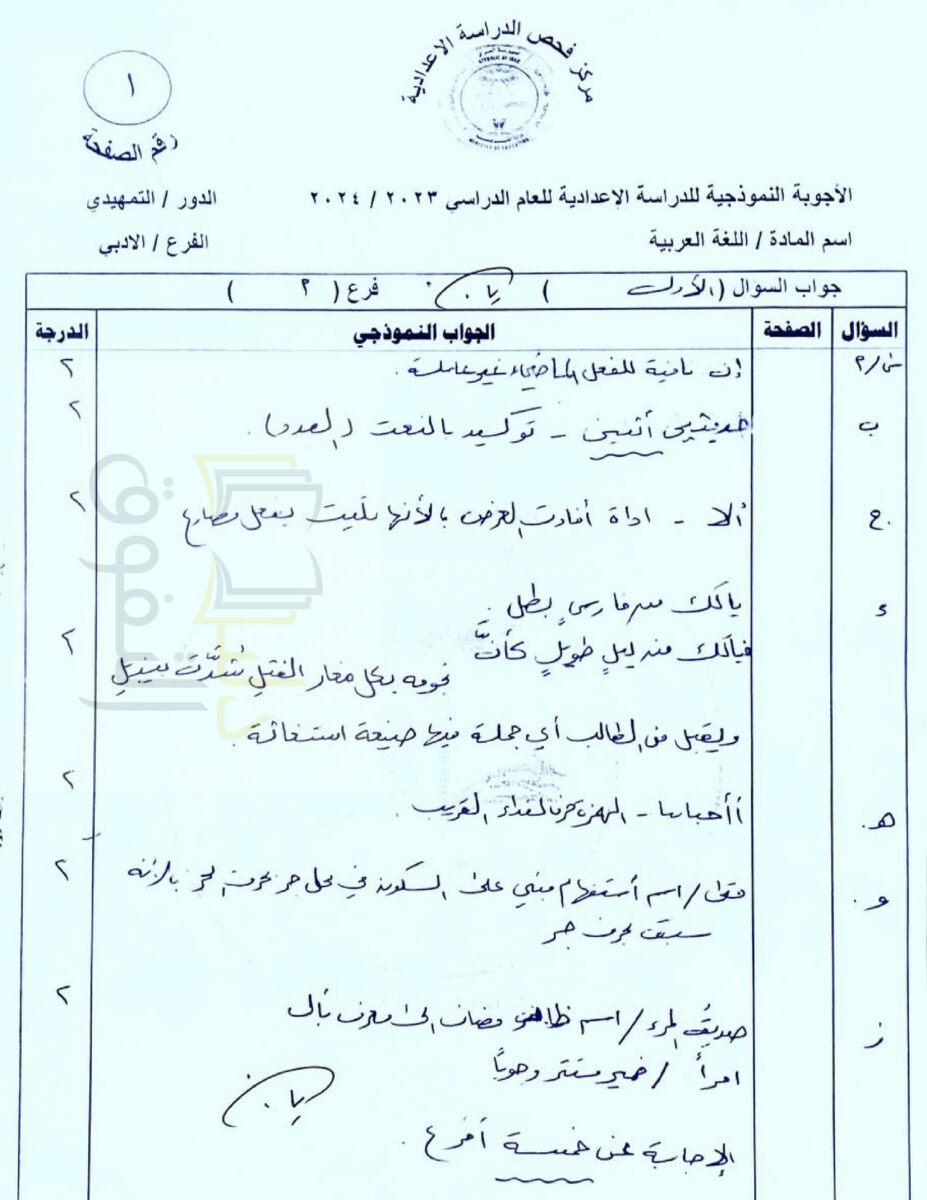 مركز فحص الدراسة الاعدادية
١
رقم الصفحة
الأجوبة النموذجية للدراسة الإعدادية للعام الدراسي ٢٠٢٣ / ٢٠٢٤
الدور / التمهيدي
اسم المادة / اللغة العربية
الفرع / الادبي
جواب السوال (الأول) فرع ( ٢ )
السؤال الصفحة الجواب النموذجي الدرجة
س/٢ إن نافية للفعل الماضي غير عاملة . ٢
ب حديثين أثنين - توكيد بالنعت (العدد) . ٢
ج. ألا - اداة أفادت العرض بالأنها تليت بفعل مضارع ٢
د يالك من فارسٍ بطل .
فيالك من ليلٍ طويلٍ كأنَّ ٢
نجومه بكل مغار الفتلِ شُدَّت بيذبلِ
ويقبل من الطالب أي جملة فيها صيغة استغاثة .
هـ. أأحبابنا - الهمزة حرف لنداء القريب . ٢
و. متى / اسم أستفهام مبني على السكون في محل جر بحرف الجر بالأنه ٢
سبق بحرف جر
ز صديقُ المرء / اسم ظاهر مضاف الى معرف بأل ٢
امرأً / ضمير مستتر وجوبًا
الإجابة عن خمسة أفرع .